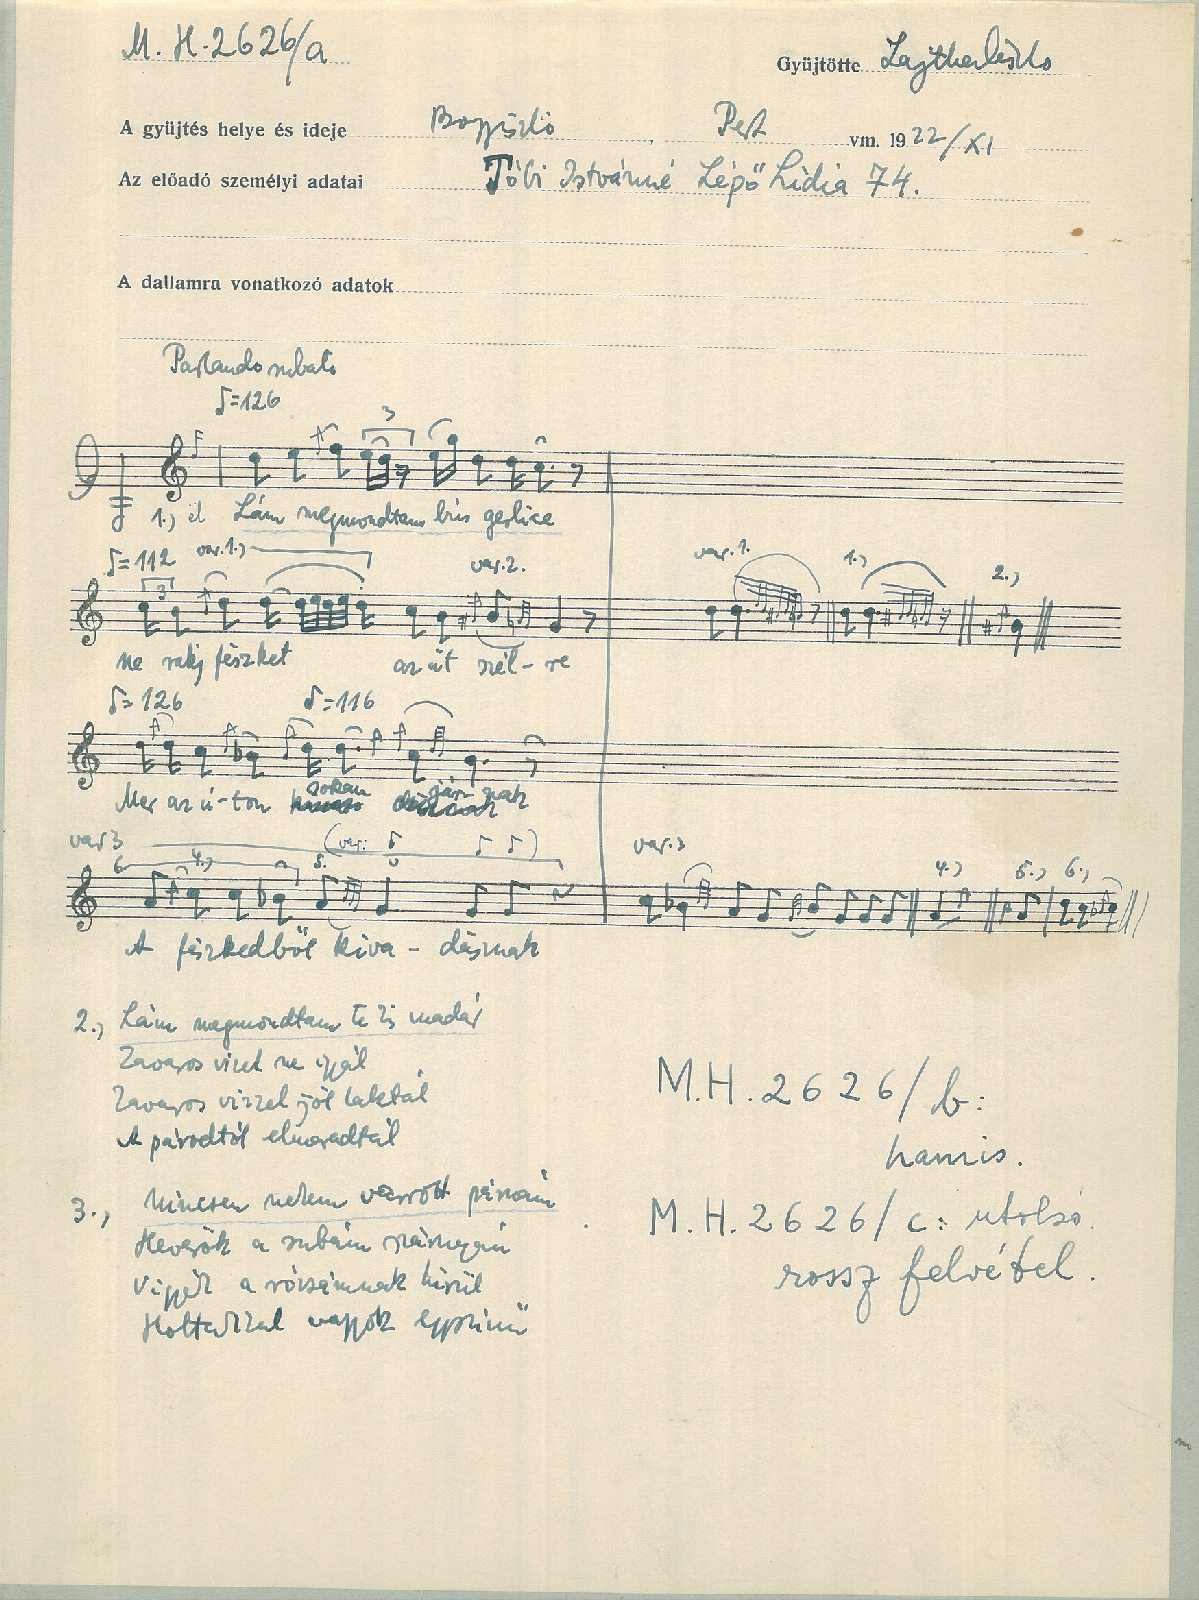 M. H. 2626/a
Gyüjtötte Lajtha László
A gyüjtés helye és ideje Bogyiszló, Pest vm. 1922/XI
Az előadó személyi adatai Tóbi Istvánné Lépő Lidia 74.
A dallamra vonatkozó adatok
Parlando rubato
♪=126
1.) él Lám megmondtam bús gerlice
♪=112 var.1.) var.2. var.1. 1.) 2.)
3
ne rakj fészket az út szél-re
♪=126 ♪=116
Mer az ú-ton sokan jár-nak
var 3 (var: ) var.3
6 4.) 5. 4.) 5.) 6.)
A fészkedből kiva - dásznak
2.) Lám megmondtam te kis madár
Zavaros vizet ne igyál
Zavaros vizzel jól laktál
A párodtól elmaradtál
3.) Nincsen nekem varrott párnám
Heverök a subám szárnyán
Vigyék a rózsámnak hirül
Holt vagyok egyszinü
M.H. 2626/b:
hamis.
M.H. 2626/c: utolsó.
rossz felvétel.